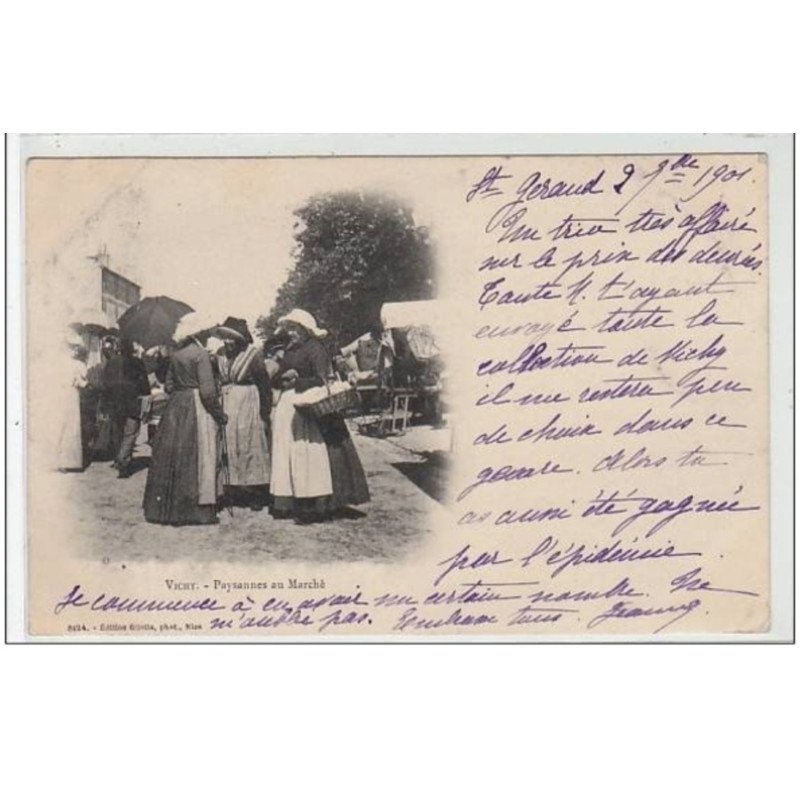 St Gerand 2 7bre 1901
Un trio très affairé
sur le prix des denrées.
Tante M. t'ayant
envoyé toute la
collection de Vichy
il me restera peu
de choix dans ce
genre. Alors tu
as aussi été gagnée
par l'épidémie.
VICHY. - Paysannes au Marché
Je commence à en avoir un certain nombre. Ne
m'oublie pas. Embrasse tous.
8124. - Édition Giletta, phot., Nice